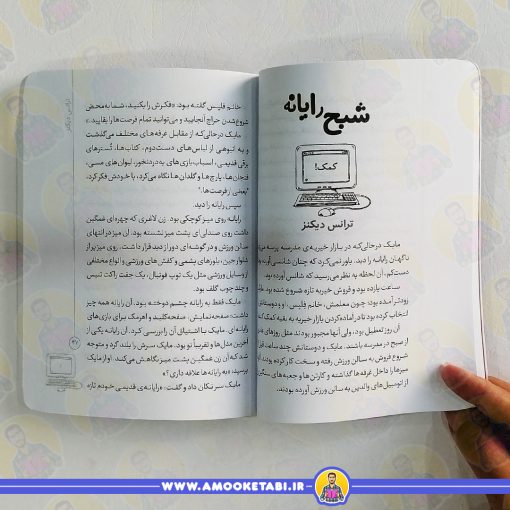 شبح رایانه
کمک!
ترانس دیکنز
مایک درحالی‌که در بازار خیریه‌ی مدرسه پرسه می‌زد
ناگهان رایانه را دید. باور نمی‌کرد که چنان شانسی آورده
دست‌کم، آن لحظه به نظر می‌رسید که شانس آورده بود.
ساعت یازده بود و فروش خیریه تازه شروع شده بود.
زودتر آمده بود؛ چون معلمش، خانم فلیس، او و دوستانش
انتخاب کرده بود تا در آماده‌کردن بازار خیریه به بقیه کمک
آن روز تعطیل بود، ولی آنها مجبور بودند مثل روزهای
از صبح در مدرسه باشند. مایک و دوستانش چند ساعت
شروع فروش به سالن ورزش رفته و سخت کار کرده بودند.
میزها را داخل غرفه‌ها گذاشته و کارتن‌ها و جعبه‌های
از اتومبیل‌های والدین به سالن ورزش آورده بودند.
ترانس دیکنز
خانم فلیس گفته بود: «فکرش را بکنید، شما به‌محض
شروع‌شدن حراج آنجایید و می‌توانید تمام فرصت‌ها را بقاپید.»
مایک درحالی‌که از مقابل غرفه‌های مختلف می‌گذشت
و به انبوهی از لباس‌های دست‌دوم، کتاب‌ها، تُسترهای
برقی قدیمی، اسباب‌بازی‌های به‌دردنخور، لیوان‌های مسی،
فنجان‌ها، پارچ‌ها و گلدان‌ها نگاه می‌کرد، با خودش فکر کرد،
"یعنی از فرصت‌ها."
سپس رایانه را دید.
رایانه روی میز کوچکی بود. زن لاغری که چهره‌ای غمگین
داشت روی صندلی‌ای پشت میز نشسته بود. این میز در انتهای
سالن ورزش و در گوشه‌ای دور از دید قرار داشت. روی میز پر از
شلوار جین، بلوزهای پشمی و کفش‌های ورزشی و انواع مختلفی
از وسایل ورزشی مثل یک توپ فوتبال، یک جفت راکت تنیس
و چند چوب گلف بود.
مایک فقط به رایانه چشم دوخته بود. آن رایانه همه چیز
داشت: صفحه‌نمایش، صفحه‌کلید و اهرمک برای بازی‌های
رایانه‌ای. مایک با اشتیاق آن را بررسی کرد. آن رایانه یکی از
آخرین مدل‌ها و تقریباً نو بود. مایک سرش را بلند کرد و متوجه
شد که آن زن غمگین پشت میز نگاهش می‌کند. او از مایک
پرسید: «به رایانه‌ها علاقه داری؟»
مایک سر تکان داد و گفت: «رایانه‌ی قدیمی خودم تازه
۹۷
WWW.AMOOKETABI.IR